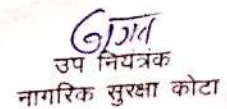 उप नियंत्रक
नागरिक सुरक्षा कोटा